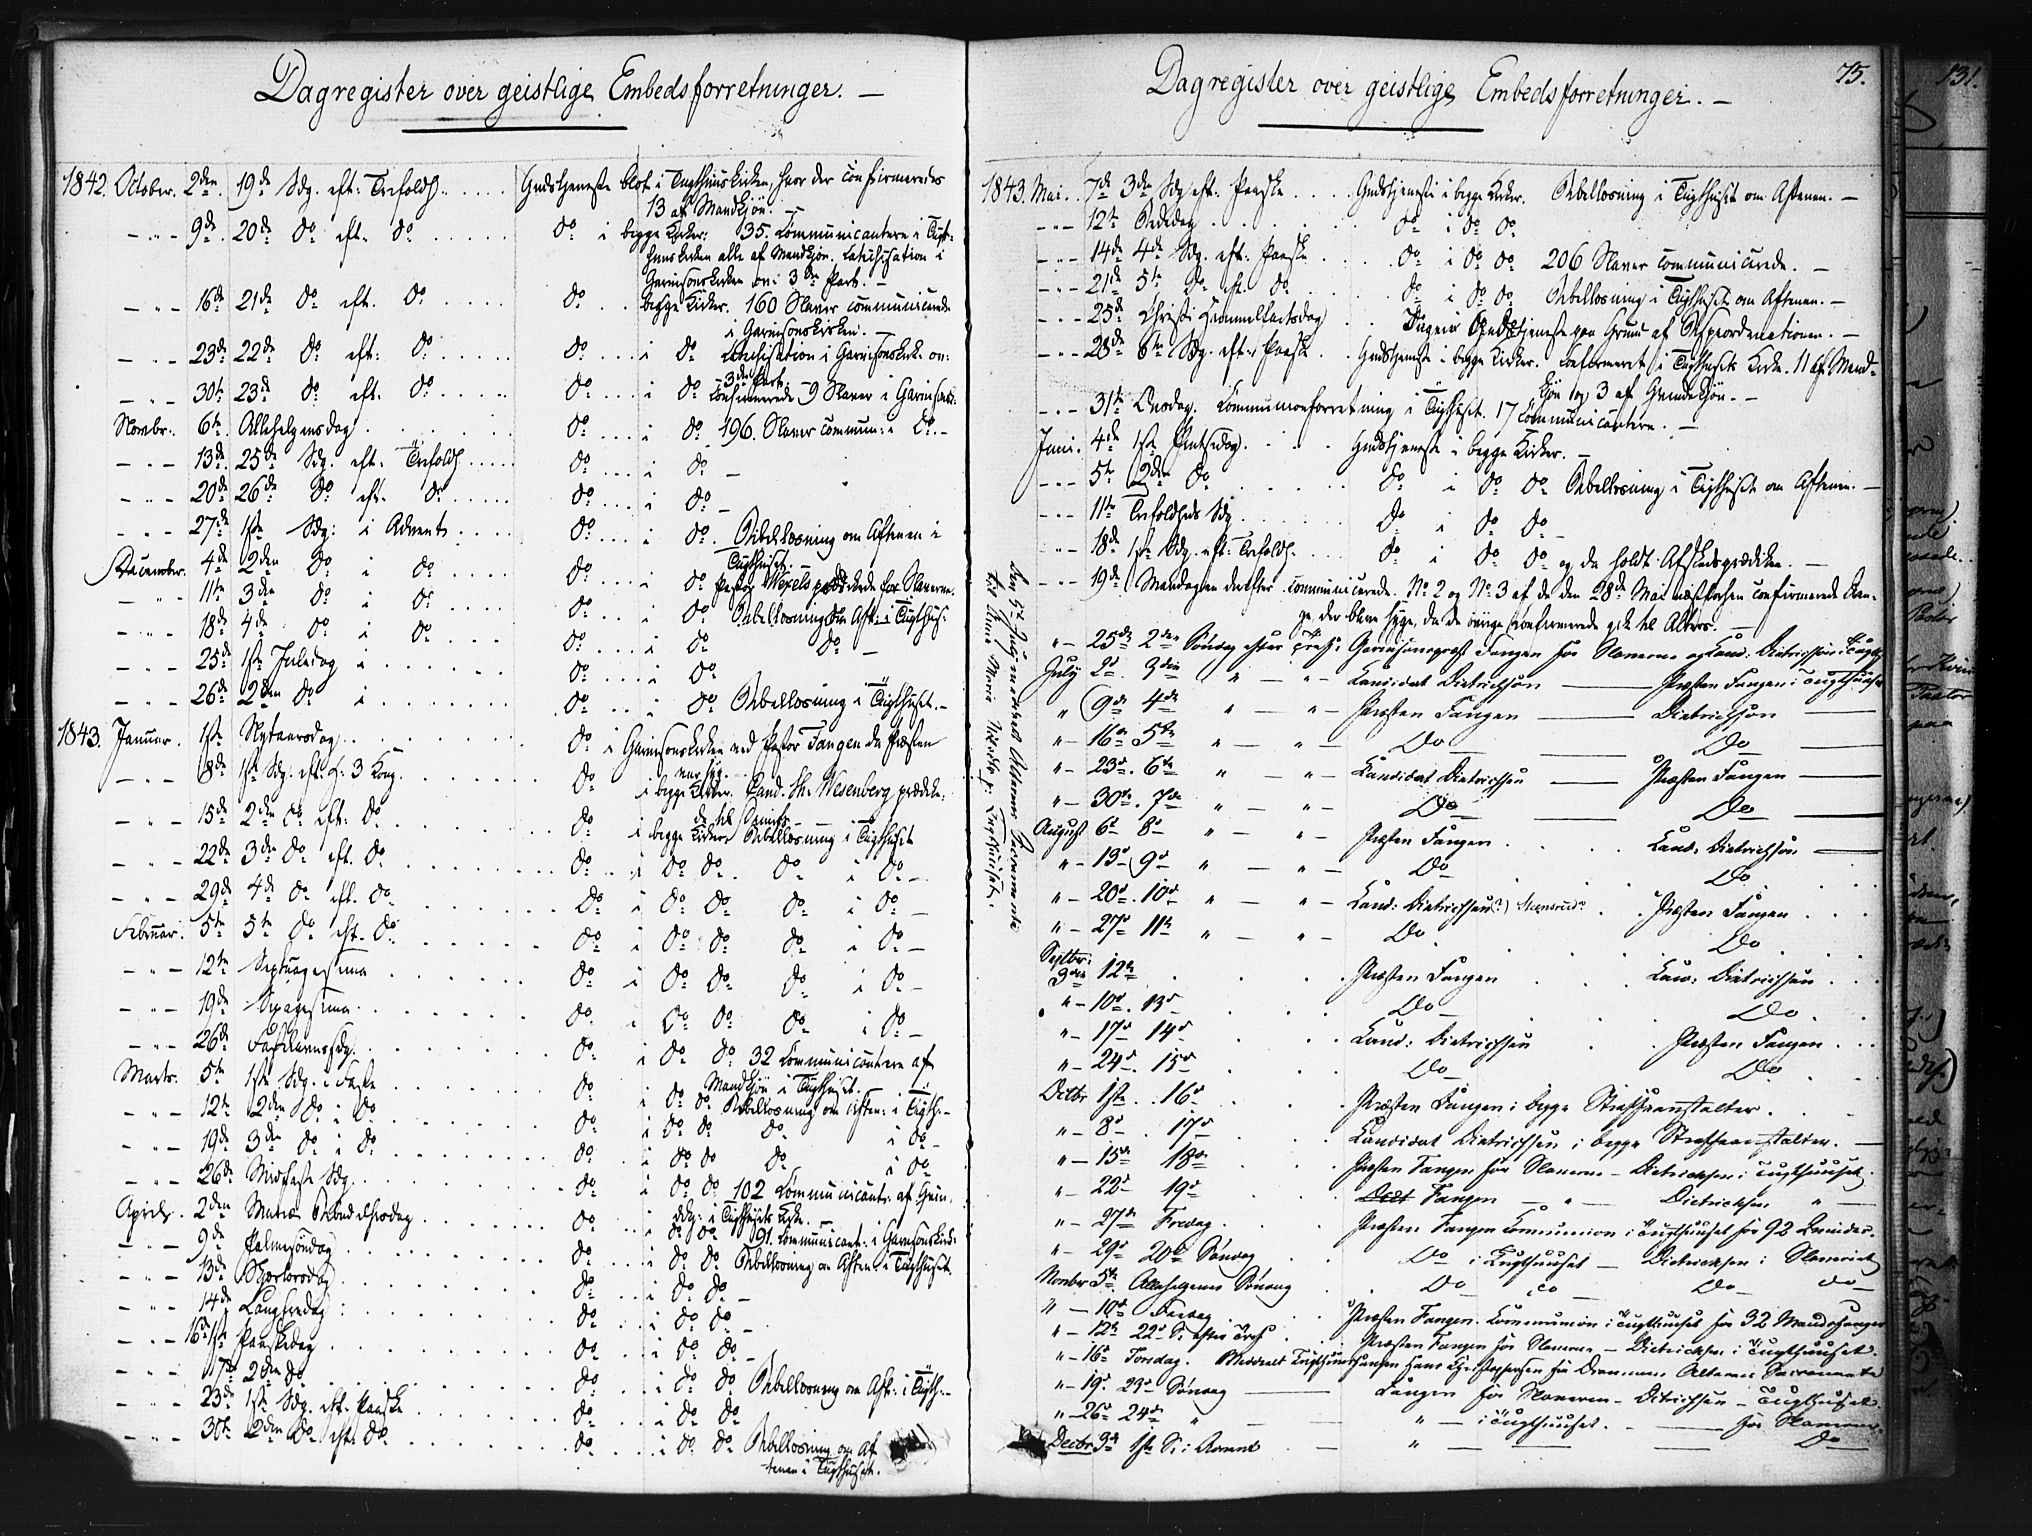 Dagregister over geistlige Embedsforretninger. —
1842. October. 2den 19de Sdg. eft: Trefoldh. . . . . Gudstjeneste blot i Tugthuuskirken, hvor der confirmeredes
13 af Mandkjön. —
— „ — 9de 20de do eft. do . . . . . do i begge Kirker: 35 Communicantere i Tugt-
huuskirken alle af Mandkjön. Catechisation i
Garnisonskirken
— „ — 16de 21de do eft. do . . . . . do . . begge Kirker. 160 Slaver communicerede
i Garnisonskirken. —
— „ — 23de 22de do eft: do . . . . . do . . . i do Catechisation i Garnisonskirk.
3die Part. —
— „ — 30te 23de do eft. do . . . . . do . . . i do confirmerede 9 Slaver i Garnisonsk.
Novbr: 6te Allehelgensdag . . . . . do . . . i do 196 Slaver commun: i do. —
— „ — 13de 25de Sdg. eft: Trefoldh. . . . . do . . . i do —
— „ — 20de 26de do eft. do . . . . . do . . . i do —
— „ — 27de 1ste Sdg: i Advent . . . . do . . . i do. Bibellæsning om Aftenen i
Tugthuset. —
December. 4de 2den do i do . . . . do . . . i do Pastor Wexels prædikede for Slaverne.
— „ — 11te 3die do i do . . . . do . . . i do Bibellæsning om Aft: i Tugthus:
— „ — 18de 4de do i do . . . . do . . . i do do —
— „ — 25de 1ste Juledag i . . . . . do . . . i do
— „ — 26de 2den do i . . . . . do . . . i do Bibellæsning i Tugthuset. —
1843. Januar. 1ste Nytaarsdag . . . . . do i Garnisonskirken ved Pastor Fangen da Præsten
var syg. —
— „ — 8de 1ste Sdg. eft: H. 3 Kong. . . . . do i begge Kirker. Cand. Th. Wesenberg prædike-
de til
— „ — 15de 2den do eft: do . . . . . do i begge Kirker Bibellæsning i Tugthuset
— „ — 22de 3die do eft. do . . . . . do . . i do do. do i do —
— „ — 29de 4de do eft. do . . . . . do i do do do i do —
Februar. 5te 5te do eft. do . . . . . do i do do do i do —
— „ — 12te Septuagesima . . . . . do i do do do i do —
— „ — 19de Sexagesima . . . . . do i do do do i do —
— „ — 26de Fastelavnssdg. . . . . . do i do do 32 Communicantere af
Mandkjön i Tugthuset.
Marts. 5te 1ste Sdg. i Faste . . . . . do i do do Bibellæsning om Aften: i Tugth: —
— „ — 12te 2den do i do . . . . . do i do do do i do —
— „ — 19de 3die do i do . . . . . do i do do do i do
— „ — 26de Midfaste Sdg. . . . . . do i do do 102 Communicant: af Qvin-
dekj: i Tugthusets Kirke. —
April. 2den Mariæ Bebudelsesdag . . . . . do . . i do do 91 Communicant: i Garnisonskirk:
— „ — 9de Palmesöndag . . . . . do . . i do do Bibellæsning om Aften i Tugthuset.
— „ — 13de Skjertorsdag . . . . . do . . i do do —
— „ — 14de Langfredag . . . . . do . . i do do —
— „ — 16de 1ste Paaskedag . . . . . do . . i do do —
— „ — 17de 2den do . . . . . do . . i do do Bibellæsning om Aft: i Tugth: —
— „ — 23de 1ste Sdg. eft. Paaske . . . . . do . . i do do
— „ — 30te 2den do eft: do . . . . . do . . i do do Bibellæsning om Af-
tenen i Tugthuset.
Dagregister over geistlige Embedsforretninger. —
75.
1843. Mai. 7de 3die Sdg. eft. Paaske . . . . Gudstjeneste i begge Kirker. Bibellæsning i Tugthuset om Aftenen. —
— „ — 12te Bededag . . . . . do i do do
— „ — 14de 4de Sdg. eft: Paaske . . . . do i do do 206 Slaver communicerede. —
— „ — 21de 5te do eft. do . . . . do i do do Bibellæsning i Tugthuset om Aftenen. —
— „ — 25de Christi Himmelfartsdag . . Ingen Gudstjeneste paa Grund af Bispeordinationen. —
— „ — 28de 6te Sdg. eft: Paaske . . Gudstjeneste i begge Kirker. Confirmeret i Tugthusets Kirke 11 af Mand-
kjön og 3 af Qvindekjön. —
— „ — 31te Onsdag. Communionforretning i Tugthuset 17 Communicantere. —
Juni. 4de 1ste Pintsedag. . . . Gudstjeneste i begge Kirker. —
— „ — 5te 2den do . . . . do i do do Bibellæsning i Tugthuset om Aftenen. —
— „ — 11te Trefoldheds Sdg. . . . . do i do do —
— „ — 18de 1ste Sdg. eft: Trefoldh. . . . do i do do og da holdt Afskedsprædiken. —
— „ — 19de Mandagen derefter communicerede No 2 og No 3 af de den 28de Mai næstforhen confirmerede Dren-
ge, der bleve syge, da de övrige Confirmerede gik til Alters. —
„ — 25de 2den Søndag efter Garnisonspræst Fangen for Slaverne og Cand: Dietrichson i Tugth.
July 2d. 3die „ — „ — Candidat Dietrichson — Præsten Fangen i Tugthuset
„ 9de 4de „ — „ — Præsten Fangen — Dietrichson —
„ — 16de 5te „ — „ — Do — Do —
„ — 23d. 6te „ — „ — Candidat Dietrichsen — Præsten Fangen —
„ — 30te. 7de „ — „ — Do — Do —
August 6te 8d „ — „ — Præsten Fangen . . . Cand: Dietrichson —
„ — 13d 9d „ — „ — Do . . . Do . . .
„ — 20d. 10d „ — „ — Cand: Dietrichsen . . Præsten Fangen . . .
„ — 27d 11te „ — „ — Do . . . Do . . .
Septbr:
3die 12te . . . Præsten Fangen . . . Cand: Dietrichsen . . .
„ — 10d. 13d . . . Do — Do . . .
„ — 17d 14d . . . Cand: Dietrichsen . . Præsten Fangen . . .
„ — 24d. 15d . . . Do — Do . . .
Octbr 1ste. . 16d . . . Præsten Fangen i begge Straffeanstalter. . .
„ — 8d . 17d . . . Candidat Dietrichsen i begge Straffeanstalter. —
„ — 15de 18de . . . Præsten Fangen for Slaverne — Dietrichsen i Tugthuuset.
„ — 22d 19d . . . Fangen — „ — Dietrichsen „ —
„ — 27de Fredag . . . Præsten Fangen Communion i Tugthuuset for 92 Qvinder.
„ — 29d 20de Søndag . . Do i Tugthuuset — Dietrichsen i Slaveriet
Novbr 5te. Allehelgenes Søndag . . Do do — Do — do —
„ — 10d Fredag . . . Præsten Fangen. Communion i Tugthuset for 32 Mandsfanger
„ — 12te 22d S: efter Tref . . Præsten Fangen for Slaverne — Dietrichsen i Tugthuuset.
„ — 16d Torsdag . Meddeelt Tugthuusfangen Hans Christophersen fra Drammen Alterens Sacramente
„ — 19d 23d Søndag — Fangen for Slaverne — Ditrichsen — Tugthuset.
„ — 26d 24de „ — „ — i Tugthuuset. — for Slaverne.
Decbr 3d 1ste S: i Advent — „ — Do —
Den 5d July meddeelt Alterens Sacramente
til Anne Marie i Tugthuset.
131.